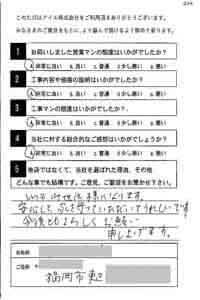 このたびはアイル株式会社をご利用頂きありがとうございます。
みなさまのご意見をもとに、より誠心で頂けるよう努めて参ります。
1 お伺いしました営業マンの態度はいかがでしたか?
A.非常に良い B.良い C.普通 D.少し悪い E.悪い
2 工事内容や価格の説明はいかがでしたか?
A.非常に良い B.良い C.普通 D.少し悪い E.悪い
3 工事マンの態度はいかがでしたか?
A.非常に良い B.良い C.普通 D.少し悪い E.悪い
4 当社に対する総合的なご感想はいかがでしょうか?
A.非常に良い B.良い C.普通 D.少し悪い E.悪い
5 他店ではなくて、当店を選ばれた理由、その他
どんな事でも結構です。ご意見、ご要望をお聞かせ下さい。
いつもお世話様になります。
安心して家を守っていただいてうれしいです
今後ともよろしくお願い
申し上げます。
お名前
ご住所
福岡市東区